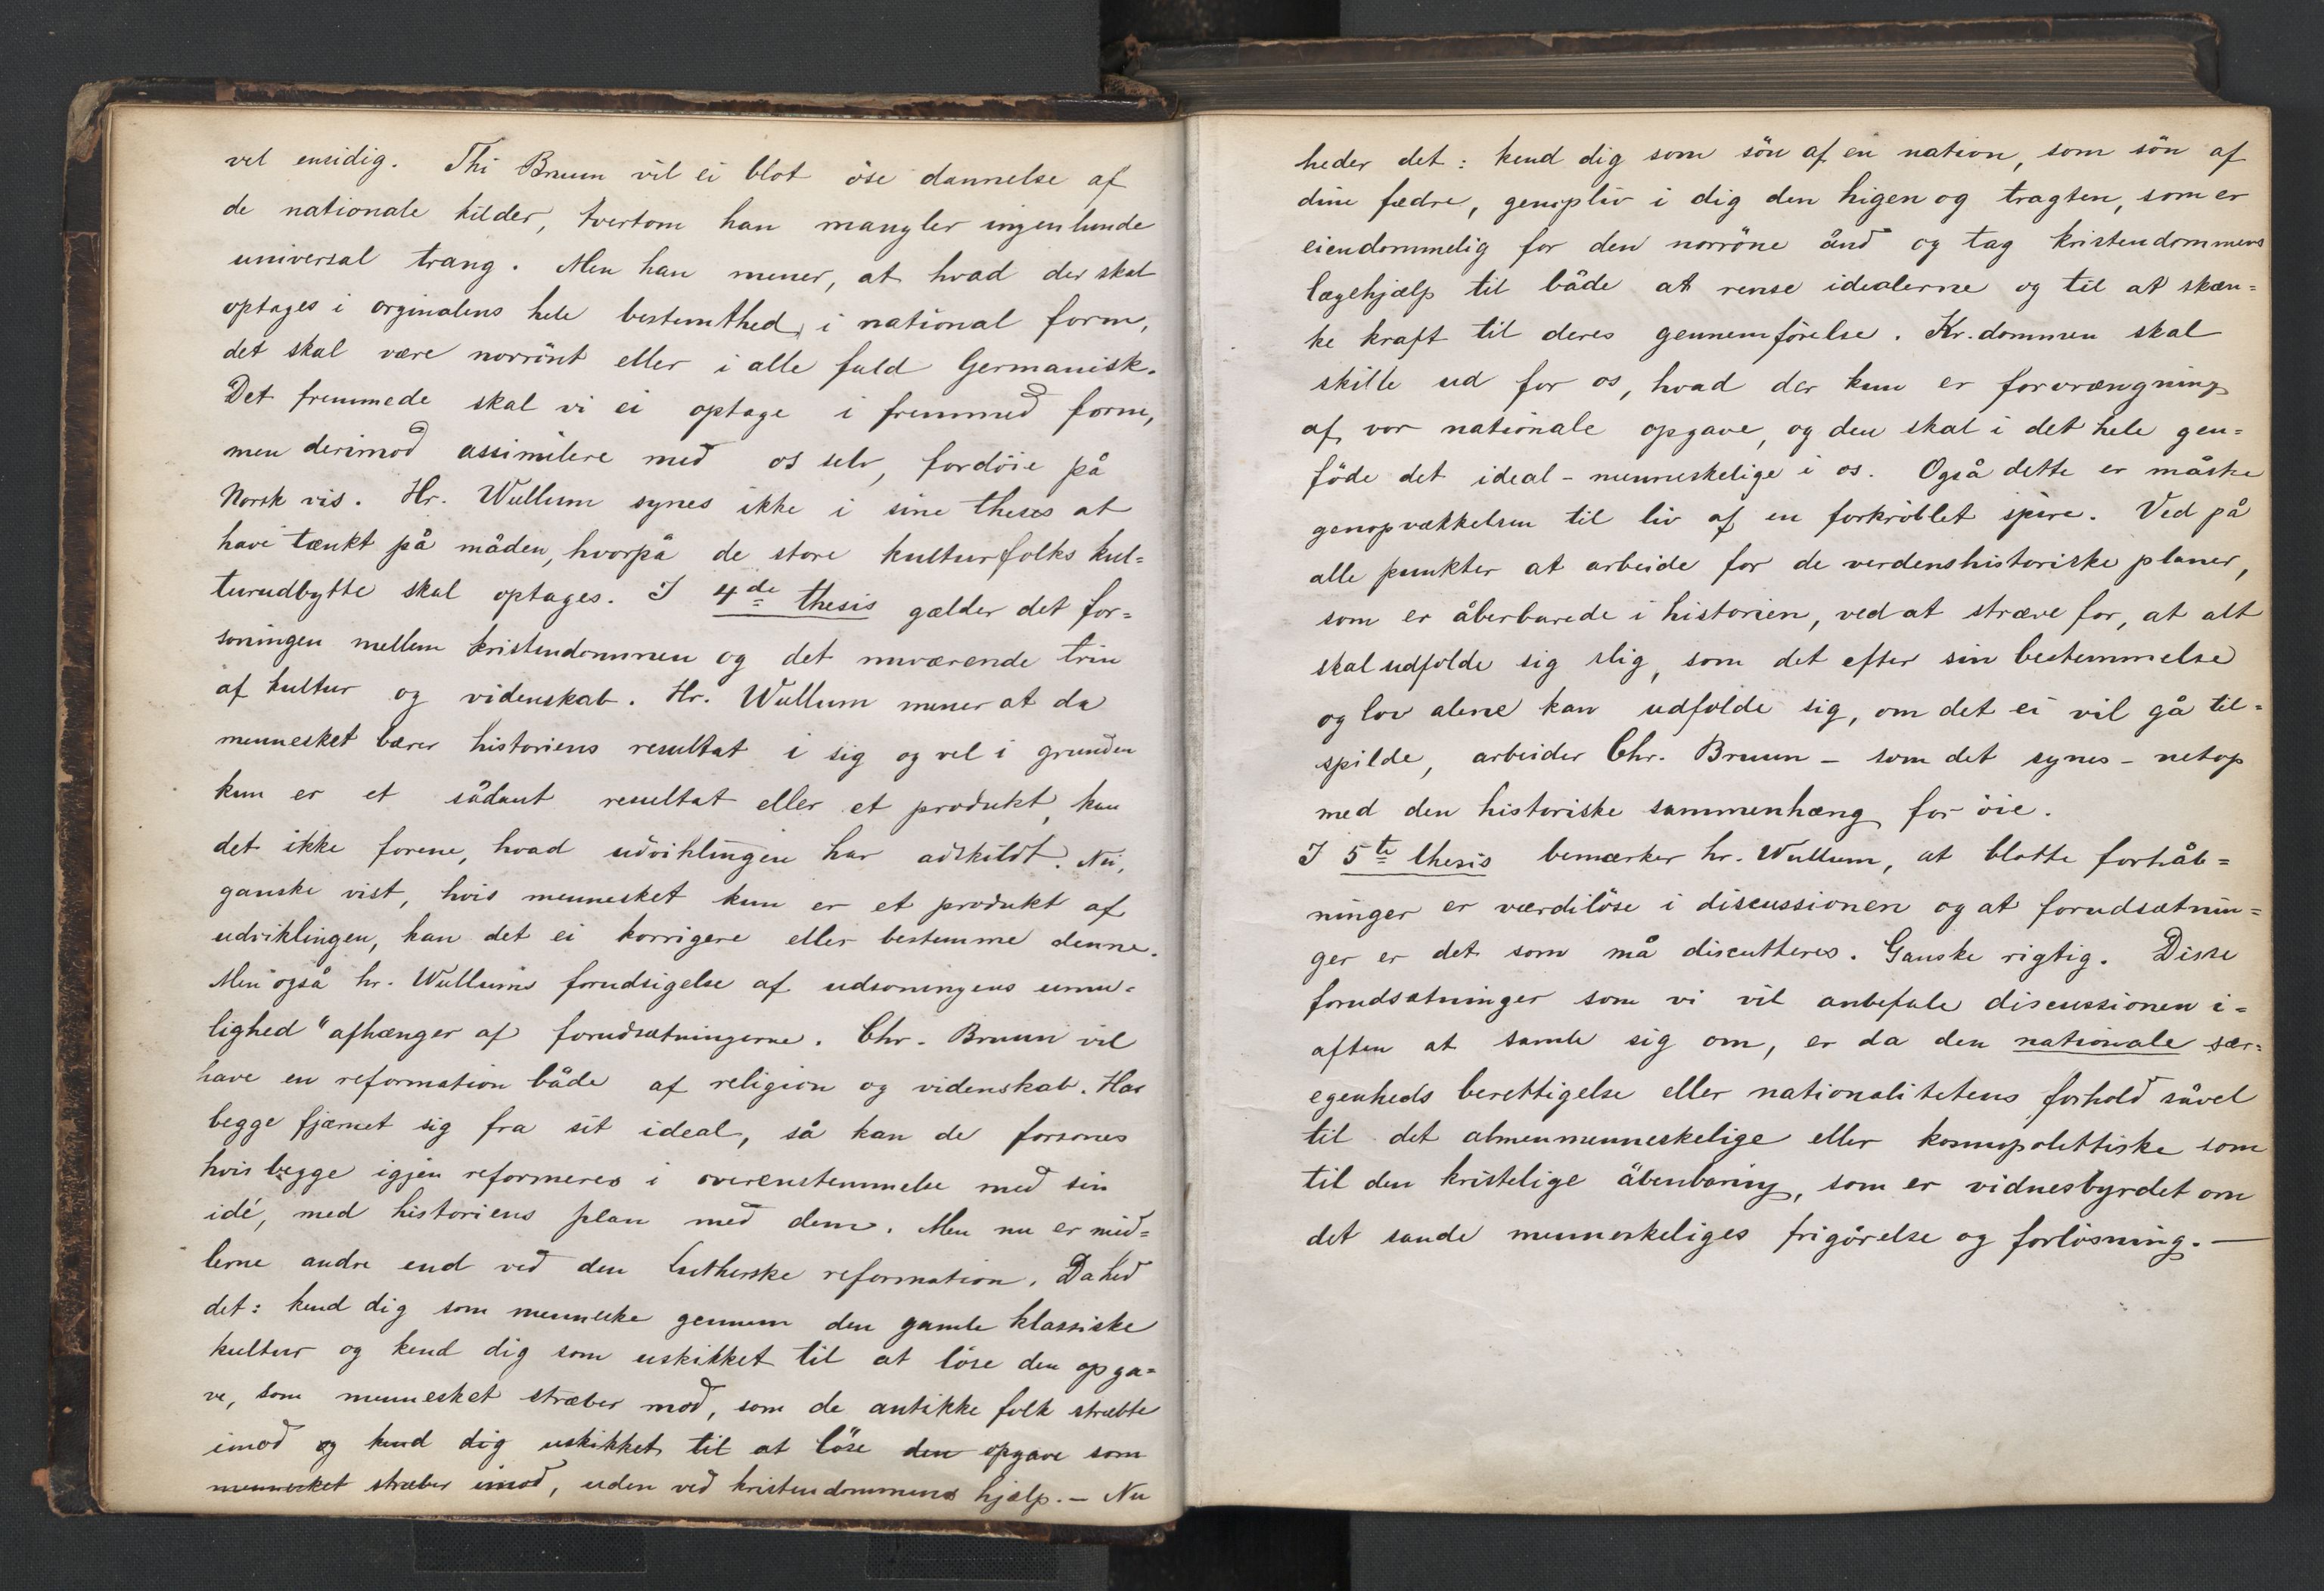 vel ensidig. Thi Bruun vil ei blot öse dannelse af
de nationale kilder, tvertom han mangler ingenlunde
universal trang. Men han mener, at hvad der skal
optages i orginalens hele bestemthed, i national form,
det skal være norrönt eller i alle fald Germanisk.
Det fremmede skal vi ei optage i fremmed form,
men derimod assimilere med os selv, fordöie på
Norsk vis. Hr. Wullum synes ikke i sine theses at
have tænkt på måden, hvorpå de store kulturfolks kul=
turudbytte skal optages. I 4de thesis gælder det for=
soningen mellem kristendommen og det nuværende trin
af kultur og videnskab. Hr. Wullum mener at da
mennesket bærer historiens resultat i sig og vel i grunden
kun er et sådant resultat eller et produkt, kan
det ikke forene, hvad udviklingen har adskildt. Nei,
ganske vist, hvis mennesket kun er et produkt af
udviklingen, kan det ei korrigere eller bestemme denne.
Men også hr. Wullums forudsigelse af udsoningens umu=
lighed" afhænger af forudsætningerne. Chr. Bruun vil
have en reformation både af religion og videnskab. Har
begge fjærnet sig fra sit ideal, så kan de forsones
hvis begge igjen reformeres i overenstemmelse med sin
idé, med historiens plan med dem. Men nu er mid=
lerne andre end ved den Lutherske reformation. Da hed
det: kend dig som menneske gennem den gamle klassiske
kultur og kend dig som uskikket til at löse den opga=
ve, som mennesket stræber mod, som de antikke folk stræbte
imod og kend dig uskikket til at löse den opgave som
mennesket stræber imod, uden ved kristendommens hjælp. - Nu
heder det: kend dig som sön af en nation, som sön af
dine fædre, genopliv i dig den higen og tragten, som er
eiendommelig for den norröne ånd og tag kristendommens
lægehjælp til både at rense idealerne og til at skæn=
ke kraft til deres gennemförelse. Kr.dommen skal
skille ud for os, hvad der kun er forvrængning
af vor nationale opgave, og den skal i det hele gen=
föde det ideal-menneskelige i os. Også dette er måske
genopvækkelsen til liv af en forkröblet spire. Ved på
alle punkter at arbeide for de verdenshistoriske planer,
som er åberbarede i historien, ved at stræve for, at alt
skal udfolde sig slig, som det efter sin bestemmelse
og lov alene kan udfolde sig, om det ei vil gå til=
spilde, arbeider Chr. Bruun - som det synes - netop
med den historiske sammenhæng for öie.
I 5te thesis bemærker hr. Wullum, at blotte forhåb=
ninger er værdilöse i discussionen og at forudsætnin=
ger er det som må discutteres. Ganske rigtig. Disse
forudsætninger som vi vil anbefale discussionen i=
aften at samle sig om, er da den nationale sær=
egenheds berettigelse eller nationalitetens forhold såvel
til det almenmenneskelige eller kosmopolittiske som
til den kristelige åbenbaring, som er vidnesbyrdet om
det sande menneskeliges frigörelse og forlösning. —